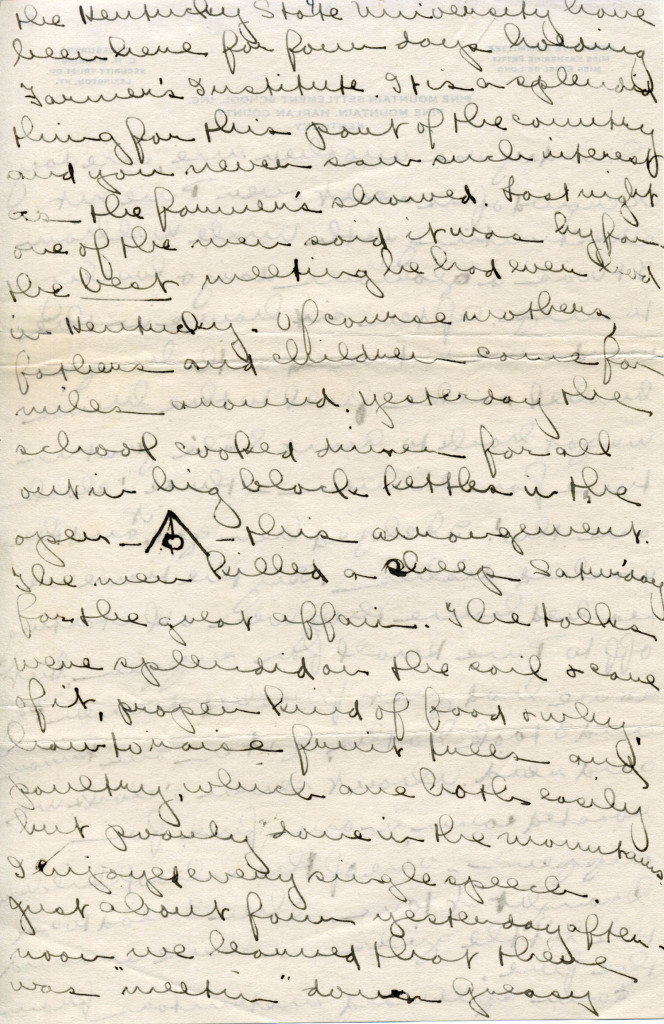 the Kentucky State University have
been here for four days holding
Farmer's Institute It is a splendid
thing for this part of the country
and you never saw such interest
as the farmer's showed. Last night
one of the men said it was by far
the best meeting he had ever had
in Kentucky. Of course mothers,
fathers and children came for
miles around. Yesterday the
school cooked dinner for all
out in big black kettles in the
open - - this arrangement.
The men killed a sheep Saturday
for the great affair. The talks
were splendid on the soil & care
of it, proper kind of food & why,
how to raise fruit trees and
poultry, which are both easily
but poorly done in the mountains.
I enjoyed every single speech.
Just about four yesterday after-
noon we learned that there
was "meetin" down Greasy